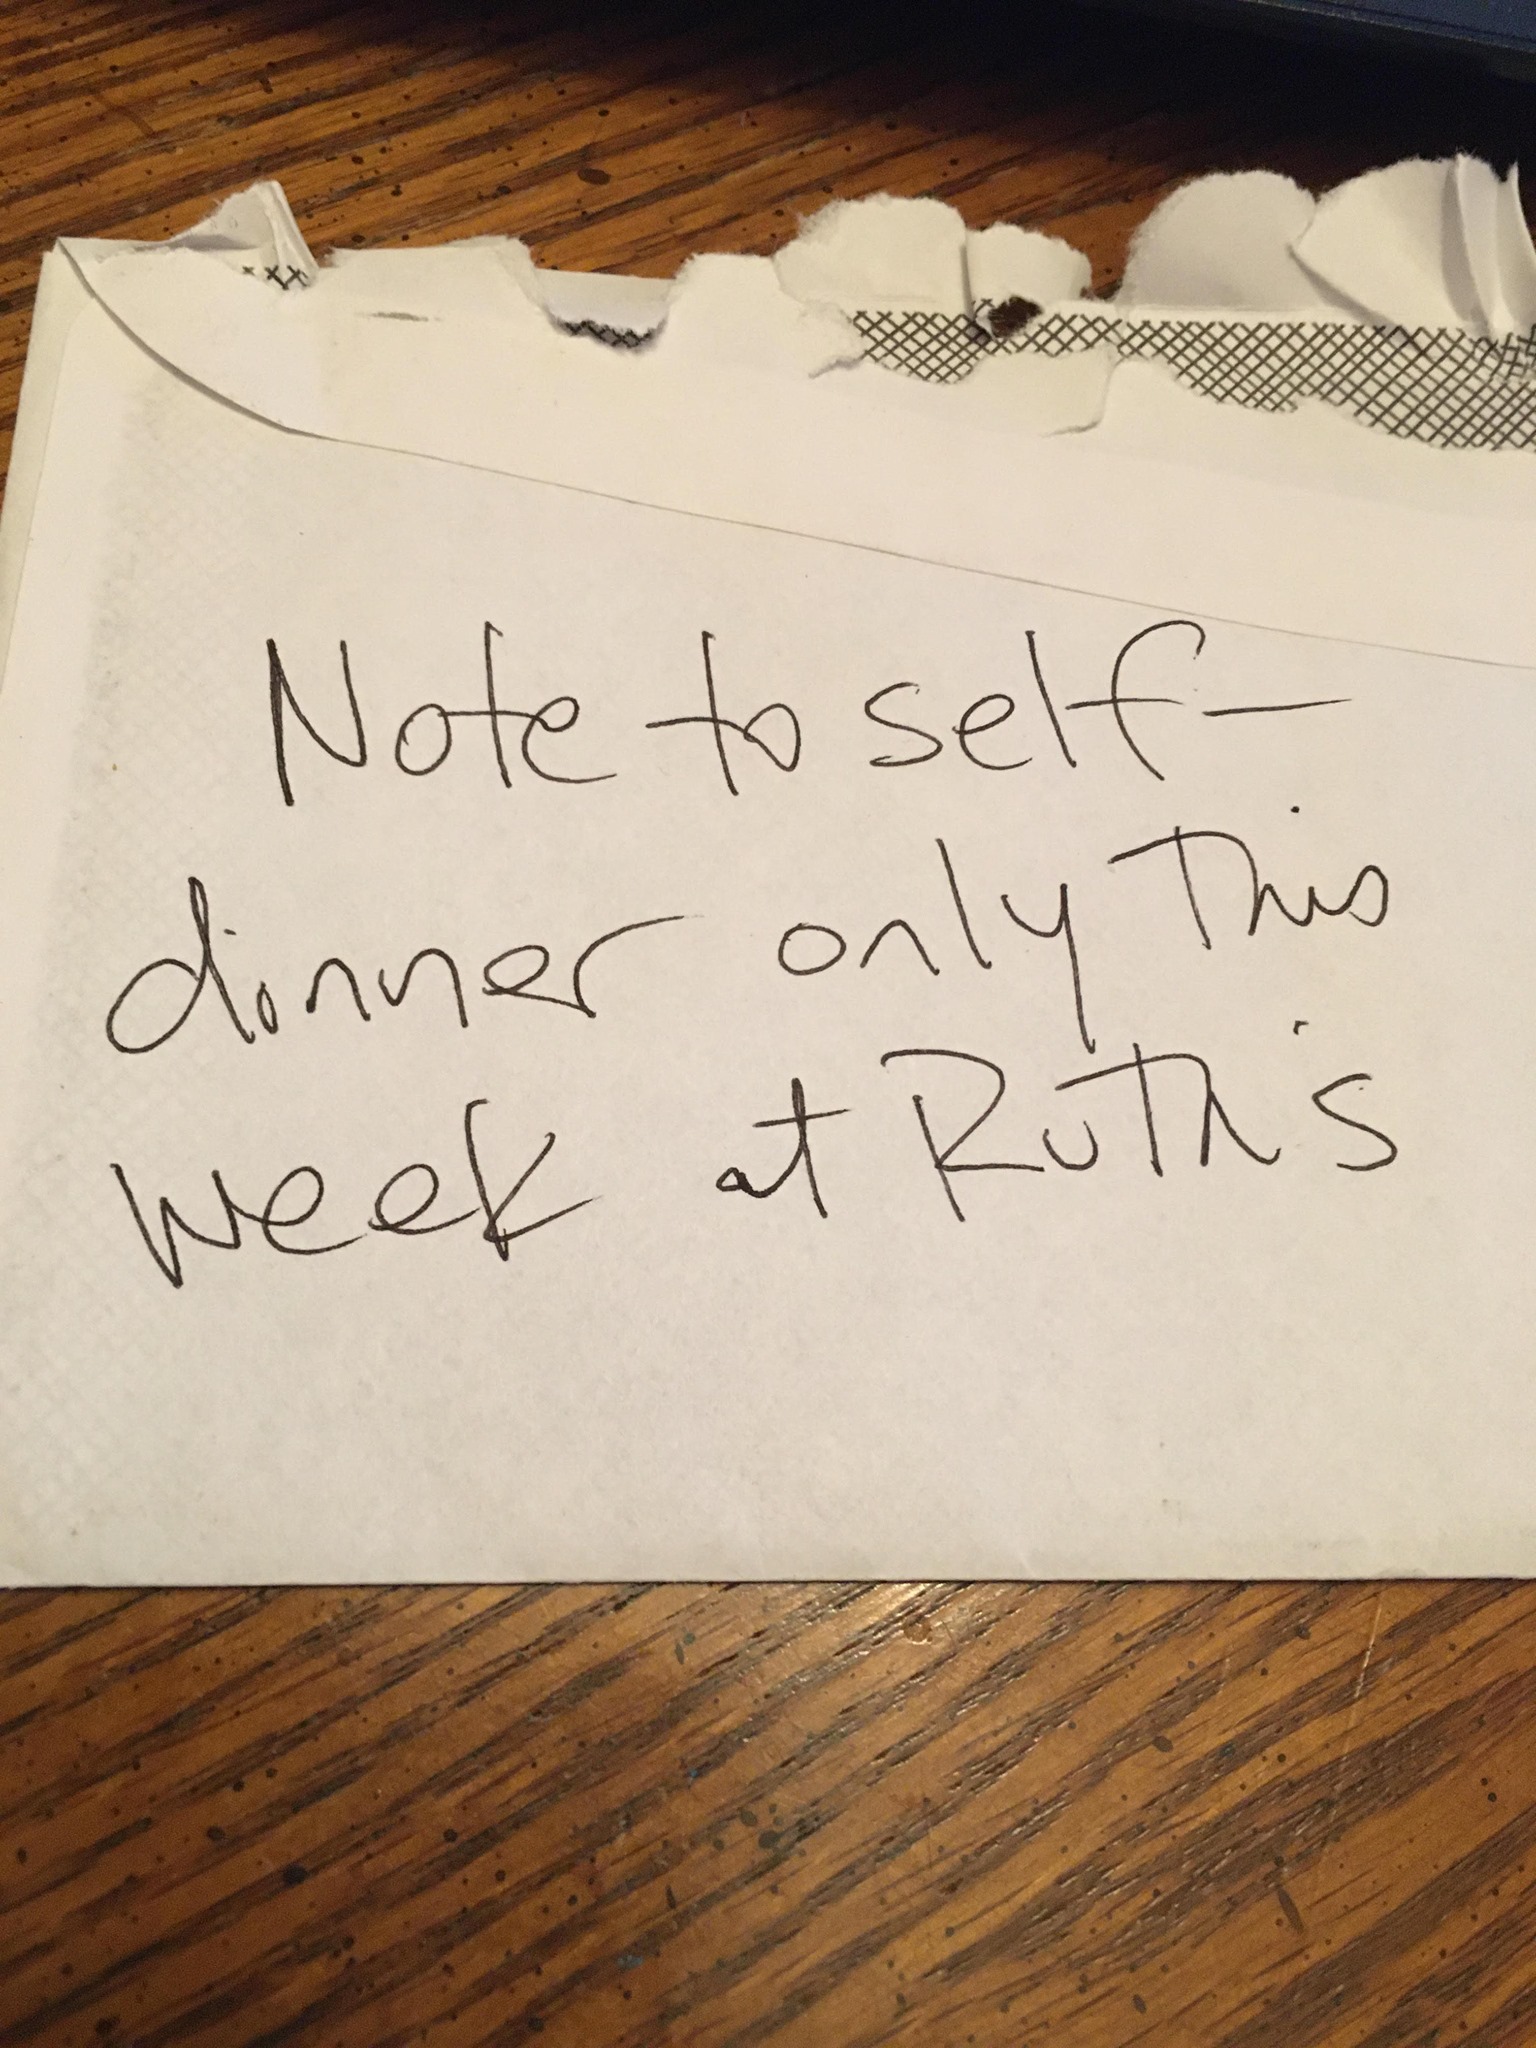 Note to self-
dinner only this
week at Ruth's